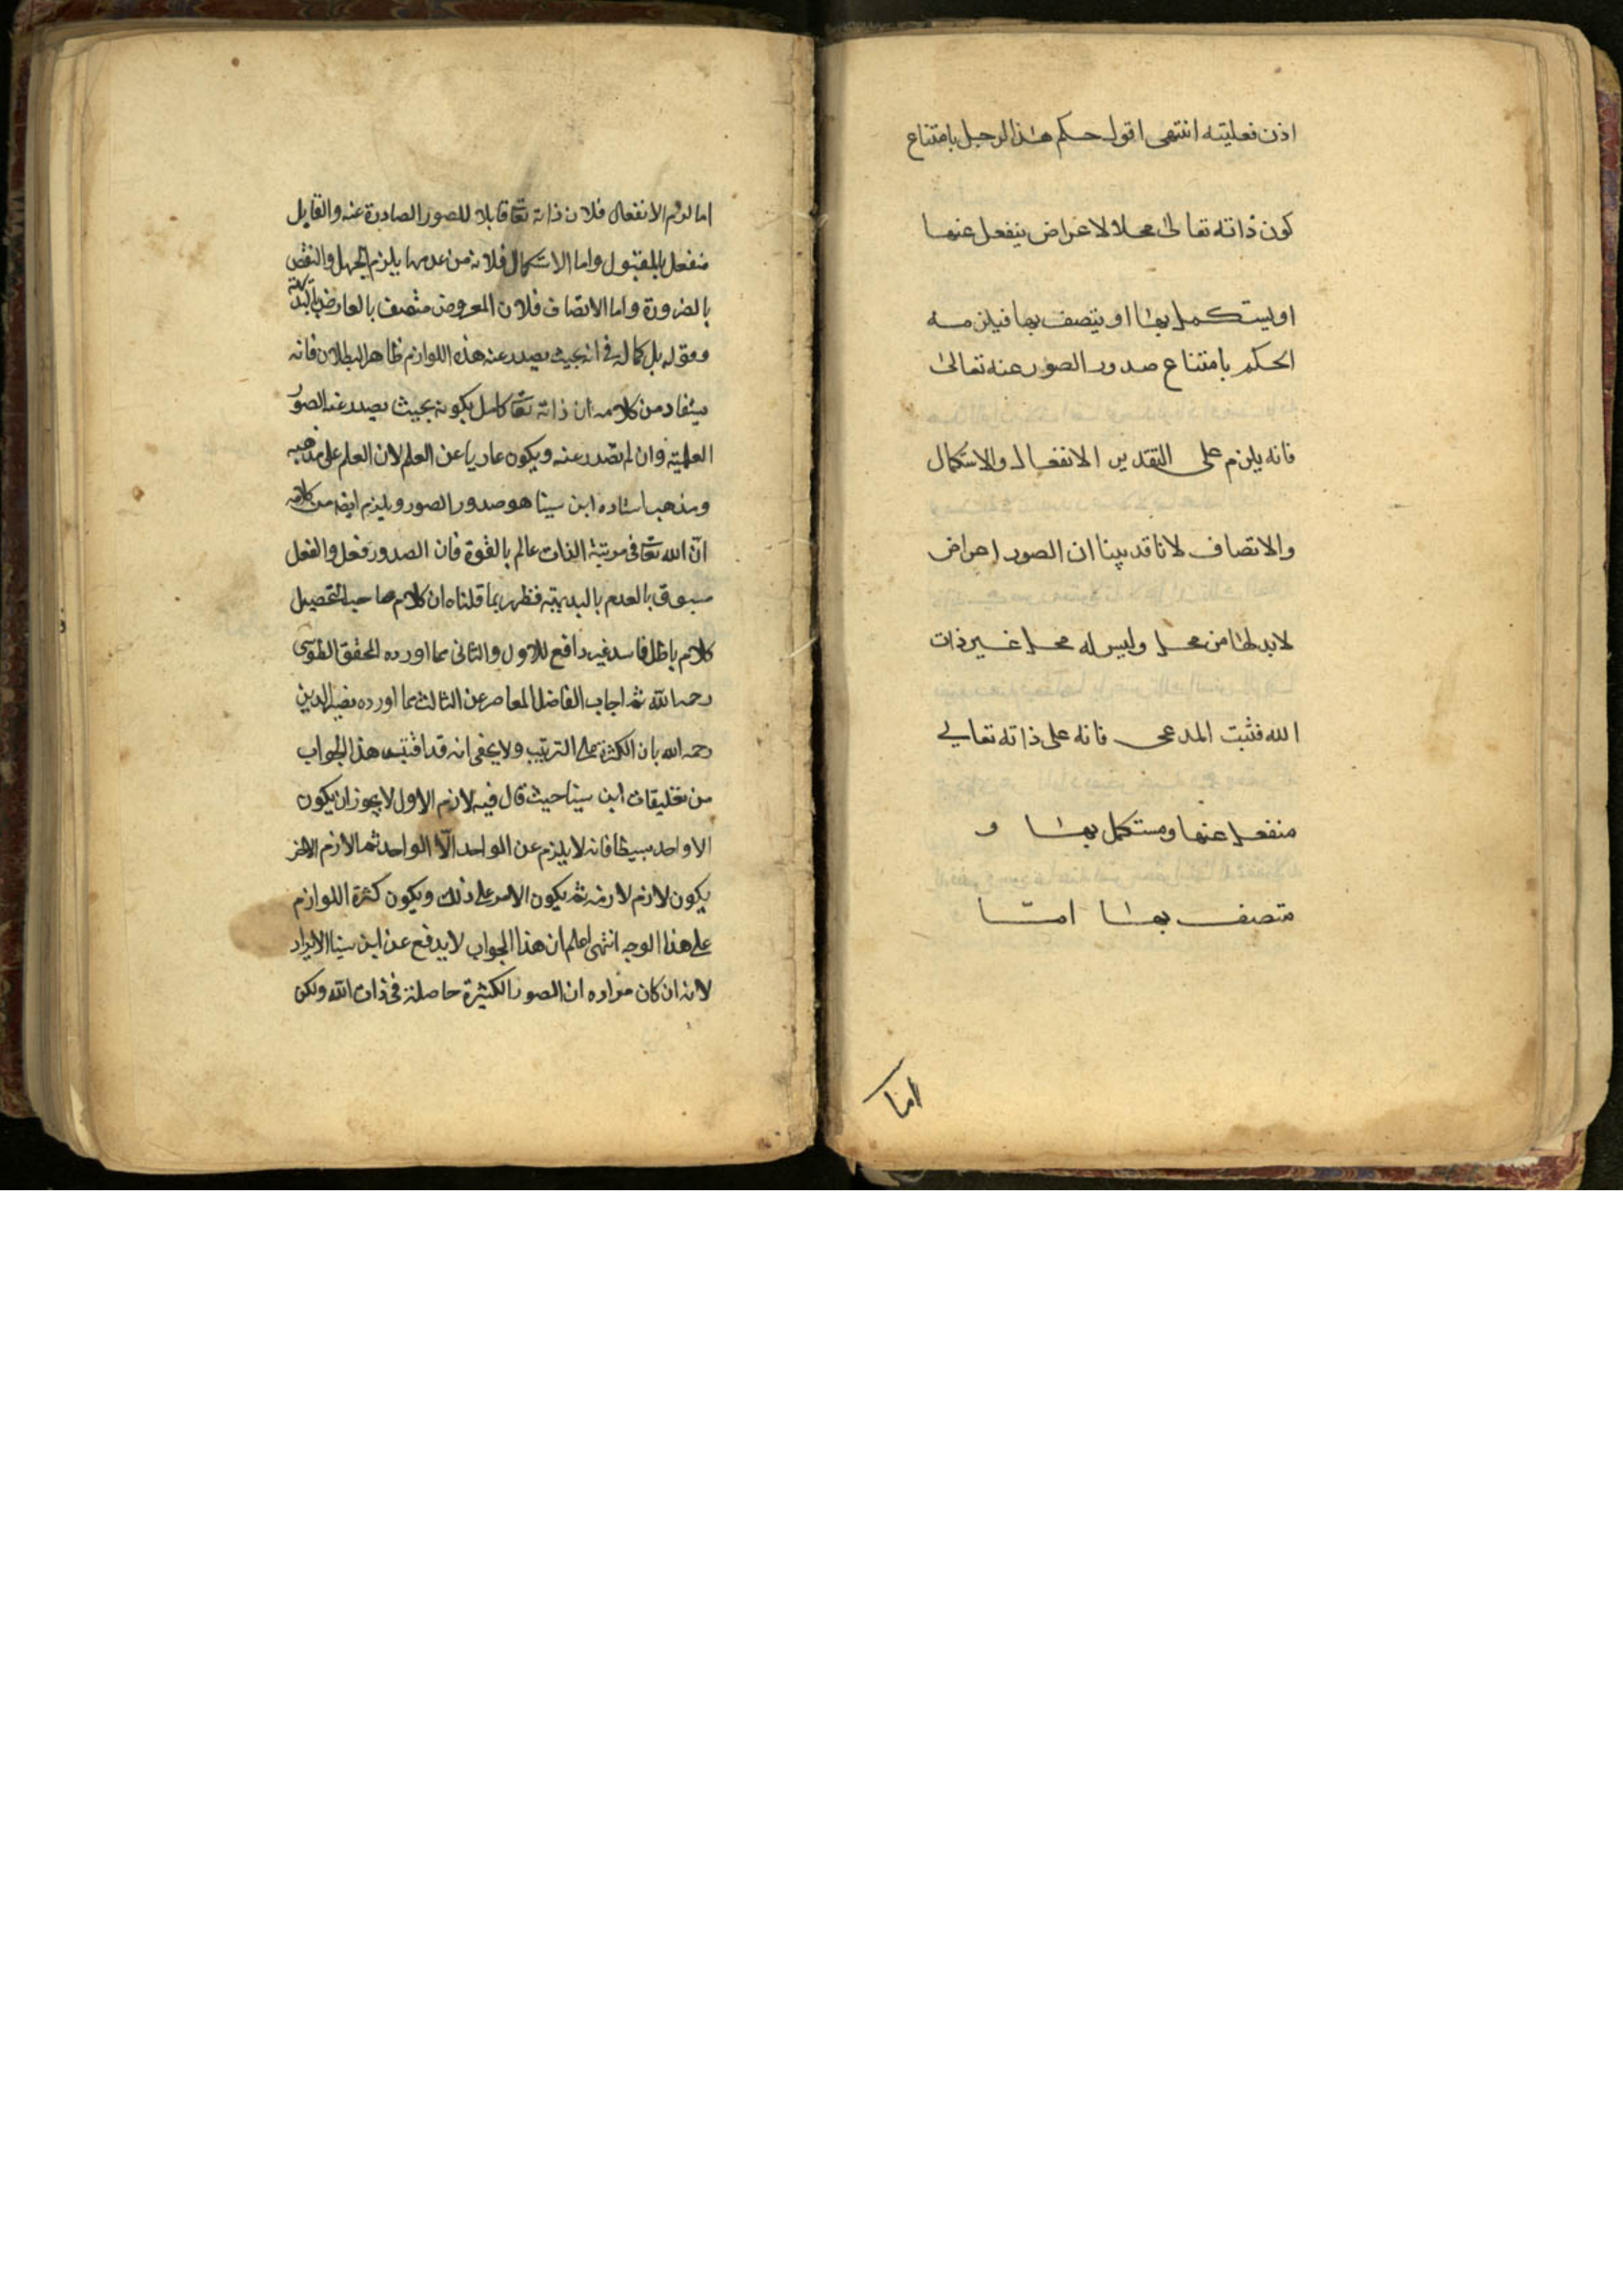 اذن فعليته انتهى اقول حكم هذا الرجل بامتناع
كون ذاته تعالى محلا لاعراض ينفعل عنها
او يستكمل بها او يتصف بها فيلزمه
الحكم بامتناع صدور الصور عنه تعالى
فانه يلزم على التقدير الانفعال والاستكمال
والاتصاف لانا قد بينا ان الصور اعراض
لابد لها من محل وليس له محل غير ذات
الله فثبت المدعى فانه على ذاته تعالى
منفعل عنها ومستكمل بها و
متصف بها اما
اما لزوم الانفعال فلان ذاته تعا قابلا للصور الصادرة عنه والقابل
منفعل بالمقبول واما الاستكمال فلانه من عدمها يلزم الجهل والنقص
بالضرورة واما الاتصاف فلان المعروض متصف بالعارض بالبديهة
وقوله بل كماله في انه بحيث يصدر عنه هذه اللوازم ظاهر البطلان فانه
يستفاد من كلامه ان ذاته تعا كامل بكونه بحيث يصدر عنه الصور
العلمية وان لم تصدر عنه ويكون عاريا عن العلم لان العلم على مذهبه
ومذهب استاده ابن سينا هو صدور الصور ويلزم ايضا من كلامه
ان الله تعا في مرتبة الذات عالم بالقوة فان الصدور فعل والفعل
مسبوق بالعدم بالبديهة فظهر بما قلناه ان كلام صاحب التحصيل
كلام باطل فاسد غير دافع للاول والثاني مما اورده المحقق الطوسي
رحمه الله ثم اجاب الفاضل المعاصر عن الثالث مما اورده نصير الدين
رحمه الله بان الكثرة على الترتيب ولا يخفى انه قد اقتبس هذا الجواب
من تعليقات ابن سينا حيث قال فيه لازم الاول لا يجوز ان يكون
الا واحد بسيطا فانه لا يلزم عن الواحد الا الواحد ثم اللازم الاخر
يكون لازم لازمه ثم يكون الامر على ذلك ويكون كثرة اللوازم
على هذا الوجه انتهى اعلم ان هذا الجواب لا يدفع عن ابن سينا الايراد
لانه ان كان مراده ان الصور الكثيرة حاصلة في ذات الله ولكن